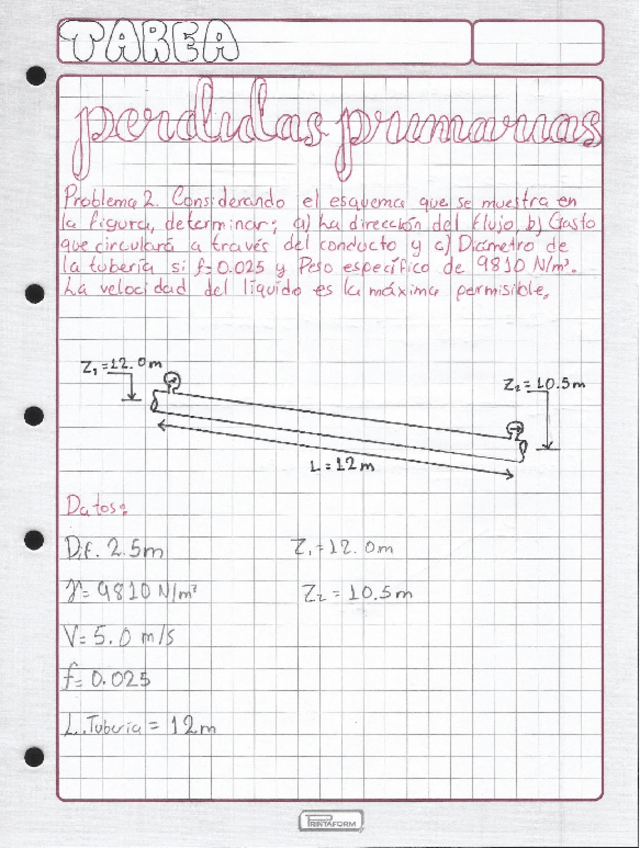 TAREA
perdidas primarias
Problema 2. Considerando el esquema que se muestra en
la figura, determinar; a) La dirección del flujo b) Gasto
que circulará a través del conducto y c) Diámetro de
la tubería si f=0.025 y Peso específico de 9810 N/m³.
La velocidad del líquido es la máxima permisible.
Z₁=12.0m
Z₂=10.5m
L=12m
Datos:
Dif. 2.5m Z₁=12.0m
γ=9810 N/m³ Z₂=10.5m
V=5.0 m/s
f=0.025
L.Tubería=12m
PRINTAFORM